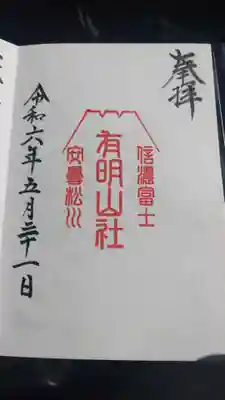 奉拝
信濃富士
有明山社
安曇松川
令和六年五月三十一日